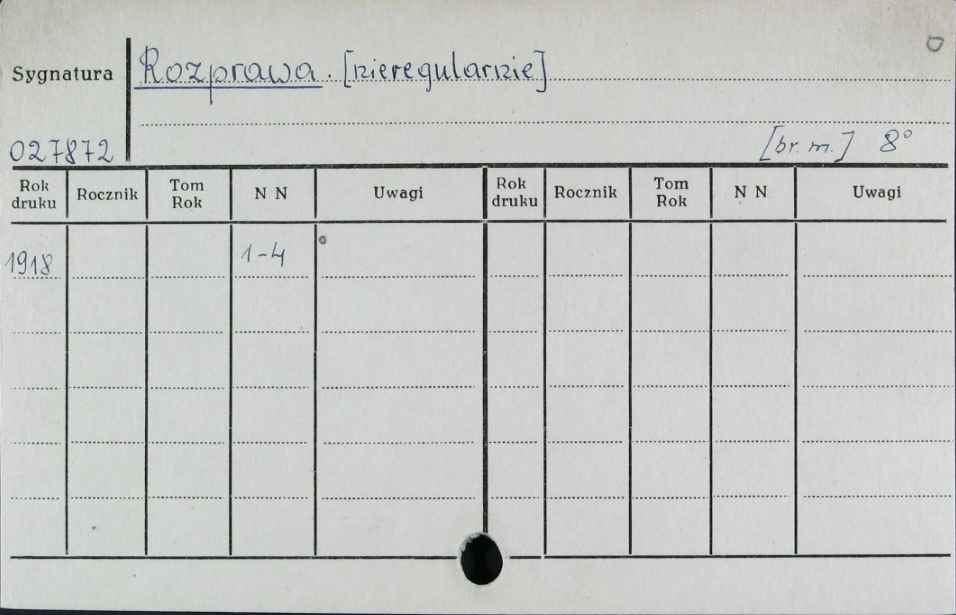 Sygnatura Rozprawa. [nieregularnie]
027872 [br. m.] 8°
Rok druku Rocznik Tom Rok N N Uwagi Rok druku Rocznik Tom Rok N N Uwagi
1918 1-4